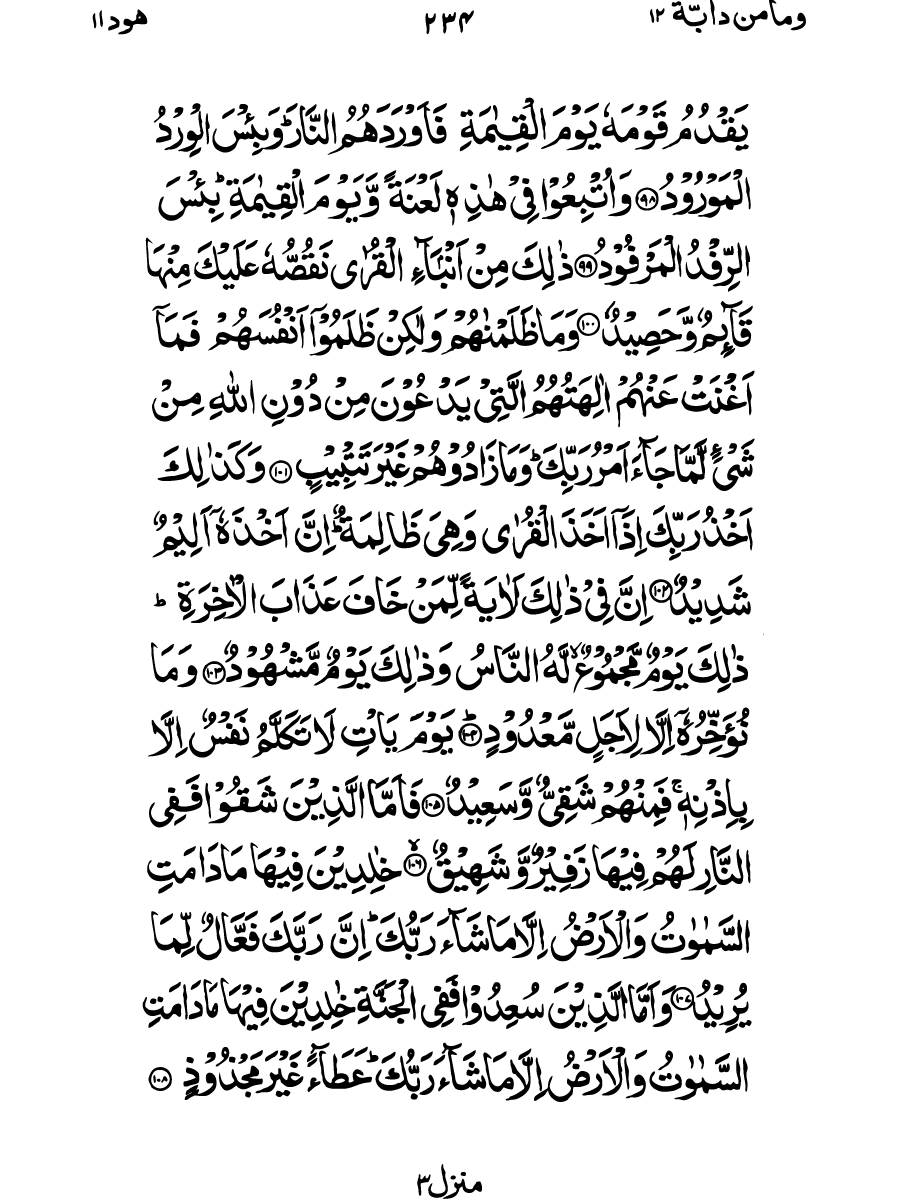 ومامن دآبّة ۱۲ ۲۳۴ هود ۱۱
يَقْدُمُ قَوْمَهٗ يَوْمَ الْقِيٰمَةِ فَاَوْرَدَهُمُ النَّارَؕ وَبِئْسَ الْوِرْدُ
الْمَوْرُوْدُ ﴿۹۸﴾ وَاُتْبِعُوْا فِىْ هٰذِهٖ لَعْنَةً وَّيَوْمَ الْقِيٰمَةِؕ بِئْسَ
الرِّفْدُ الْمَرْفُوْدُ ﴿۹۹﴾ ذٰلِكَ مِنْ اَنْۢبَآءِ الْقُرٰى نَقُصُّهٗ عَلَيْكَ مِنْهَا
قَآئِمٌ وَّحَصِيْدٌ ﴿۱۰۰﴾ وَمَا ظَلَمْنٰهُمْ وَلٰكِنْ ظَلَمُوْۤا اَنْفُسَهُمْ فَمَاۤ
اَغْنَتْ عَنْهُمْ اٰلِهَتُهُمُ الَّتِىْ يَدْعُوْنَ مِنْ دُوْنِ اللّٰهِ مِنْ
شَىْءٍ لَّمَّا جَآءَ اَمْرُ رَبِّكَؕ وَمَا زَادُوْهُمْ غَيْرَ تَتْبِيْبٍ ﴿۱۰۱﴾ وَكَذٰلِكَ
اَخْذُ رَبِّكَ اِذَاۤ اَخَذَ الْقُرٰى وَهِىَ ظَالِمَةٌؕ اِنَّ اَخْذَهٗۤ اَلِيْمٌ
شَدِيْدٌ ﴿۱۰۲﴾ اِنَّ فِىْ ذٰلِكَ لَاٰيَةً لِّمَنْ خَافَ عَذَابَ الْاٰخِرَةِؕ
ذٰلِكَ يَوْمٌ مَّجْمُوْعٌۙ لَّهُ النَّاسُ وَذٰلِكَ يَوْمٌ مَّشْهُوْدٌ ﴿۱۰۳﴾ وَمَا
نُؤَخِّرُهٗۤ اِلَّا لِاَجَلٍ مَّعْدُوْدٍؕ ﴿۱۰۴﴾ يَوْمَ يَاْتِ لَا تَكَلَّمُ نَفْسٌ اِلَّا
بِاِذْنِهٖۚ فَمِنْهُمْ شَقِىٌّ وَّسَعِيْدٌ ﴿۱۰۵﴾ فَاَمَّا الَّذِيْنَ شَقُوْا فَفِى
النَّارِ لَهُمْ فِيْهَا زَفِيْرٌ وَّشَهِيْقٌۙ ﴿۱۰۶﴾ خٰلِدِيْنَ فِيْهَا مَا دَامَتِ
السَّمٰوٰتُ وَالْاَرْضُ اِلَّا مَا شَآءَ رَبُّكَؕ اِنَّ رَبَّكَ فَعَّالٌ لِّمَا
يُرِيْدُ ﴿۱۰۷﴾ وَاَمَّا الَّذِيْنَ سُعِدُوْا فَفِى الْجَنَّةِ خٰلِدِيْنَ فِيْهَا مَا دَامَتِ
السَّمٰوٰتُ وَالْاَرْضُ اِلَّا مَا شَآءَ رَبُّكَؕ عَطَآءً غَيْرَ مَجْذُوْذٍ ﴿۱۰۸﴾
منزل ۳